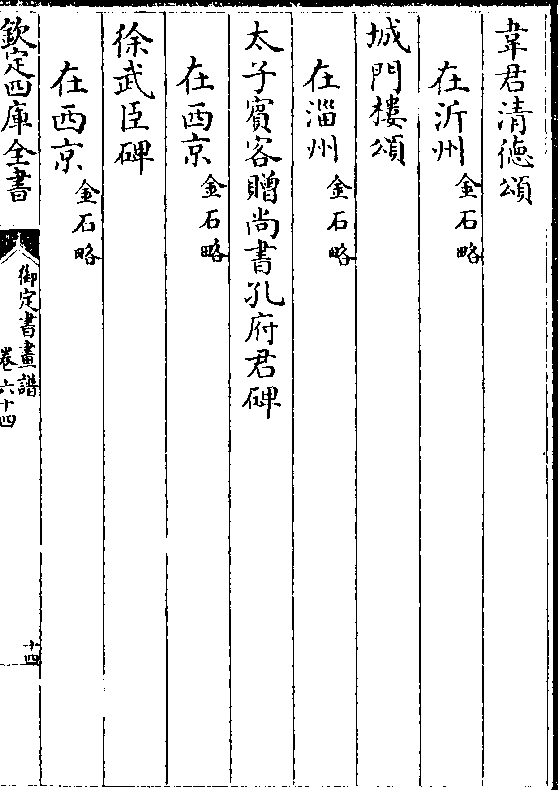 韋君清德頌
在沂州金石略
城門樓頌
在淄州金石略
太子賓客贈尚書孔府君碑
在西京金石略
徐武臣碑
在西京金石略
欽定四庫全書
御定書畫譜
卷六十四
十四